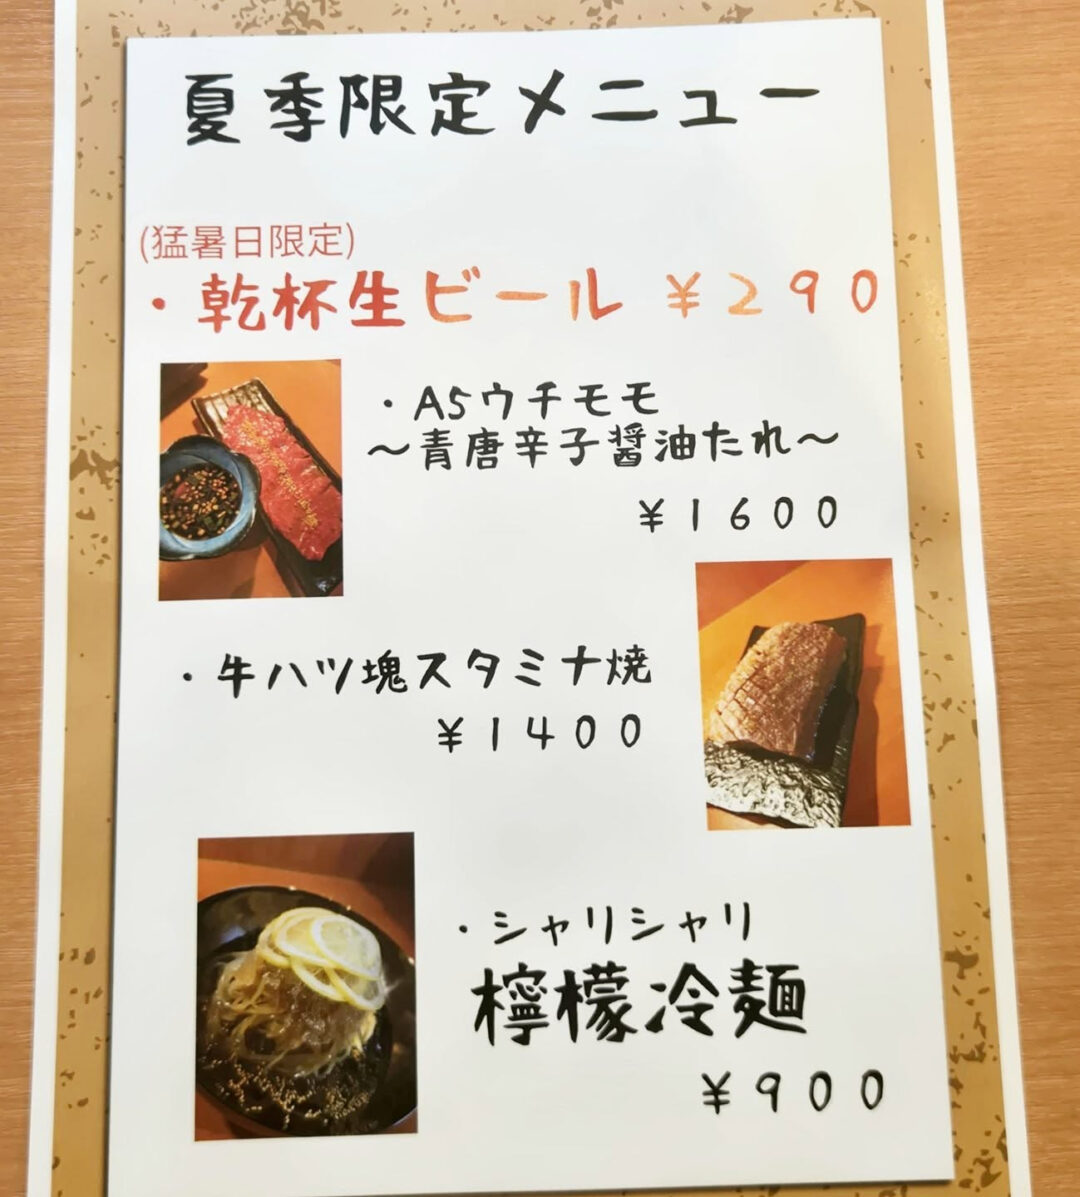 夏季限定メニュー
(猛暑日限定)
・乾杯生ビール ¥290
・A5ウチモモ
～青唐辛子醤油たれ～
¥1600
・牛ハツ塊スタミナ焼
¥1400
・シャリシャリ
檸檬冷麺
¥900